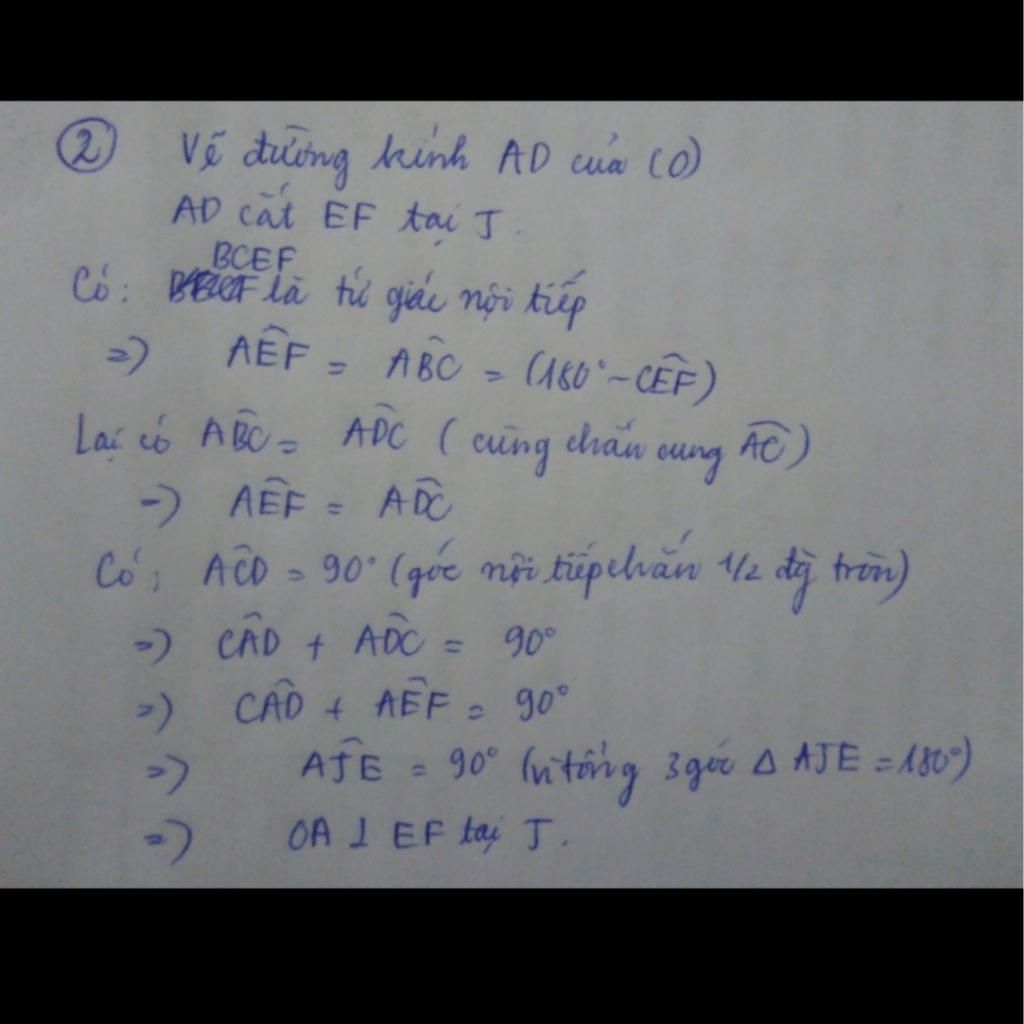 ② Vẽ đường kính AD của (O)
AD cắt EF tại J.
BCEF
Có: là tứ giác nội tiếp
=) AÊF = AB̂C = (180° - CÊF)
Lại có AB̂C = AD̂C ( cùng chắn cung AC)
=) AÊF = AD̂C
Có: AĈD = 90° (góc nội tiếp chắn 1/2 đg tròn)
=) CÂD + AD̂C = 90°
=) CÂD + AÊF = 90°
=) AĴE = 90° (vì tổng 3 góc Δ AJE = 180°)
=) OA ⊥ EF tại J.